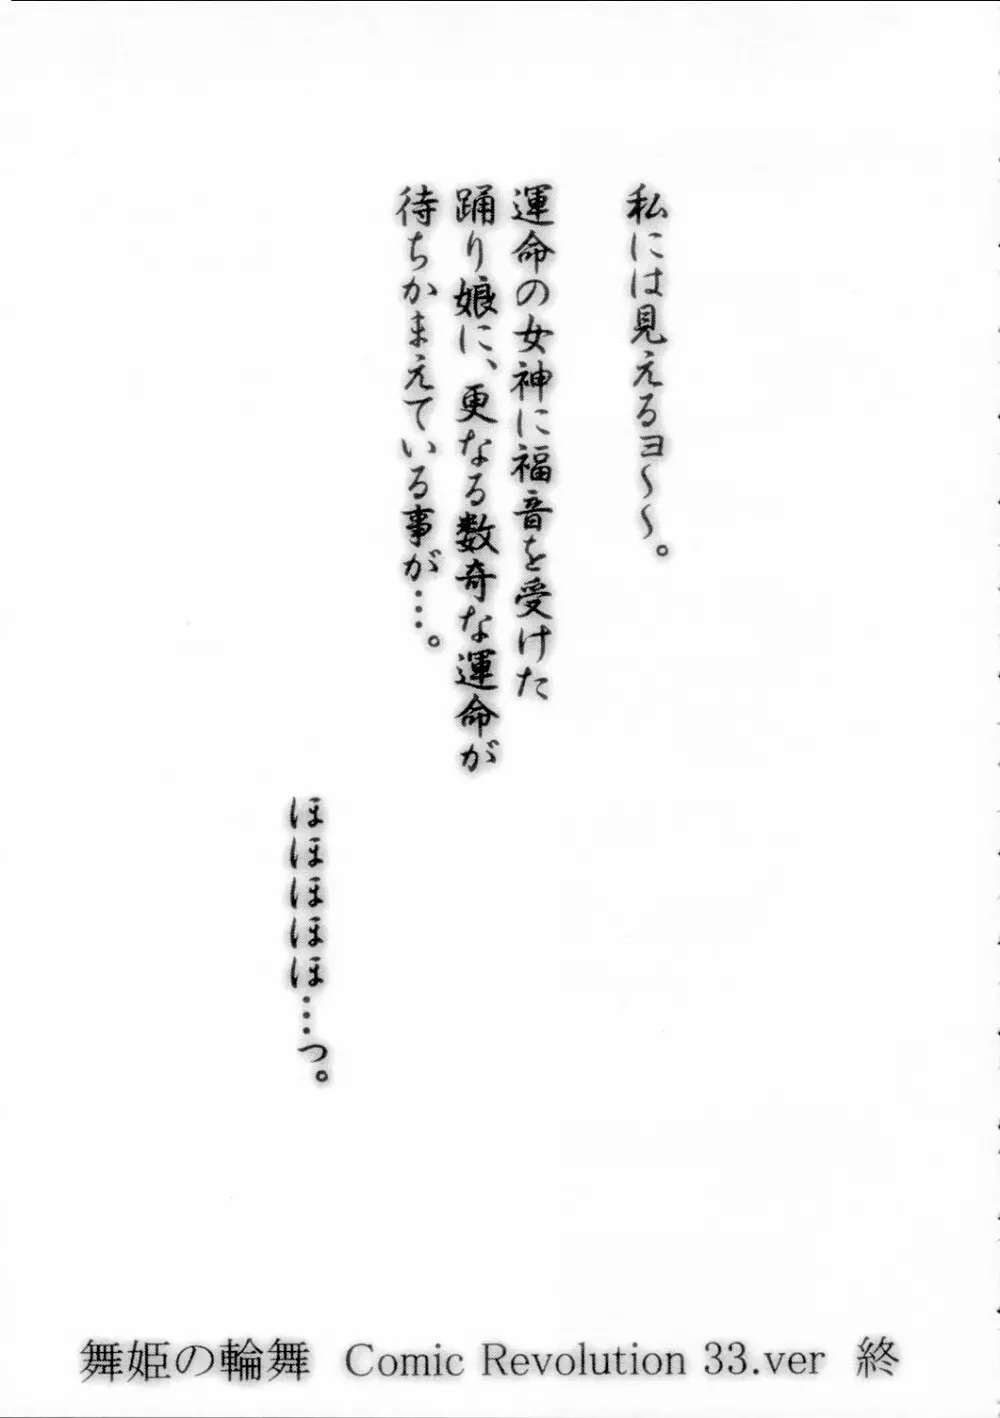 私には見えるヨ～～。
運命の女神に福音を受けた
踊り娘に、更なる数奇な運命が
待ちかまえている事が…。
ほほほほほ…っ。
舞姫の輪舞 Comic Revolution 33.ver 終